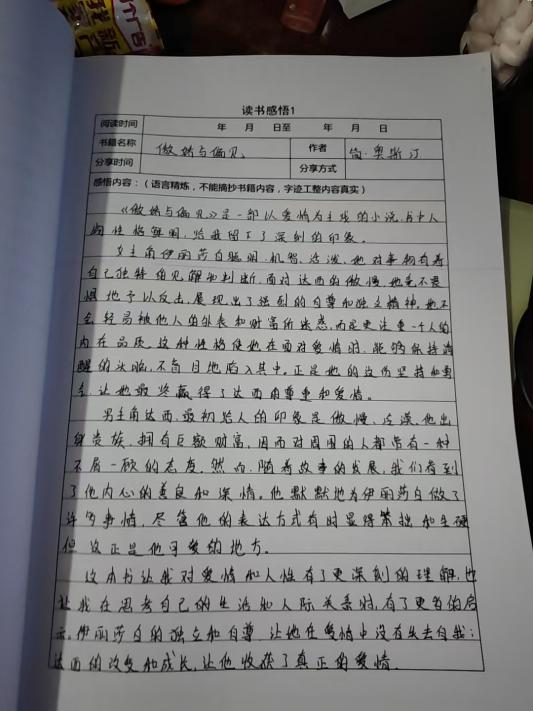 读书感悟1
阅读时间 年 月 日至 年 月 日
书籍名称 傲娇与偏见 作者 简·奥斯汀
分享时间 分享方式
感悟内容:(语言精炼,不能摘抄书籍内容,字迹工整内容真实)
《傲娇与偏见》是一部以爱情为主线的小说,书中人
物性格鲜明,给我留下了深刻的印象。
女主角伊丽莎白聪明、机智、活泼,她对事物有着
自己独特的见解和判断,面对达西的傲慢,她毫不畏
惧地予以反击,展现出了强烈的自尊和独立精神。她不
会轻易被他人的外表和财富所迷惑,而是更注重一个人的
内在品质。这种性格使她在面对爱情时,能够保持清
醒的头脑,不盲目地陷入其中。正是她的这份坚持和勇
气,让她最终赢得了达西的尊重和爱情。
男主角达西,最初给人的印象是傲慢、冷漠,他出
身贵族,拥有巨额财富,因而对周围的人都带有一种
不屑一顾的态度。然而,随着故事的发展,我们看到
了他内心的善良和深情。他默默地为伊丽莎白做了
许多事情,尽管他的表达方式有时显得笨拙和生硬
但这正是他可爱的地方。
这本书让我对爱情和人性有了更深刻的理解,也
让我在思考自己的生活和人际关系时,有了更多的启
示。伊丽莎白的独立和自尊,让她在爱情中没有失去自我;
达西的改变和成长,让他收获了真正的爱情.